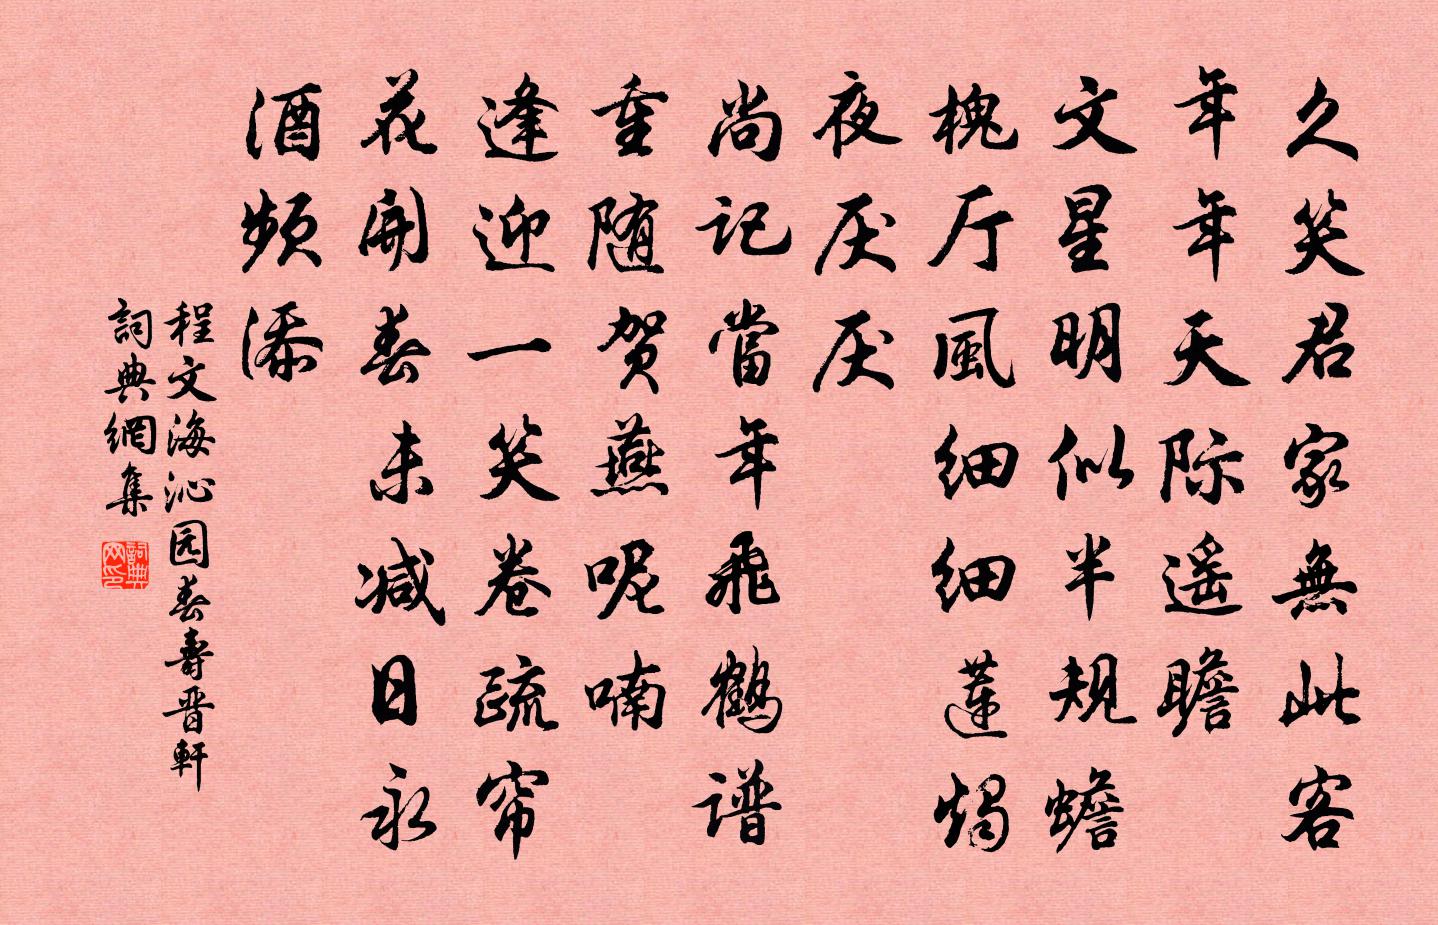 久笑君家無此客
年年天际遥瞻
文星明似半规蟾
槐厅風细细莲烛
夜厌厌
尚记當年飛鶴谱
重随贺燕呢喃
逢迎一笑卷疏帘
花開春未减日永
酒频添
程文海沁园春壽晋軒
詞典網集
詞典网印